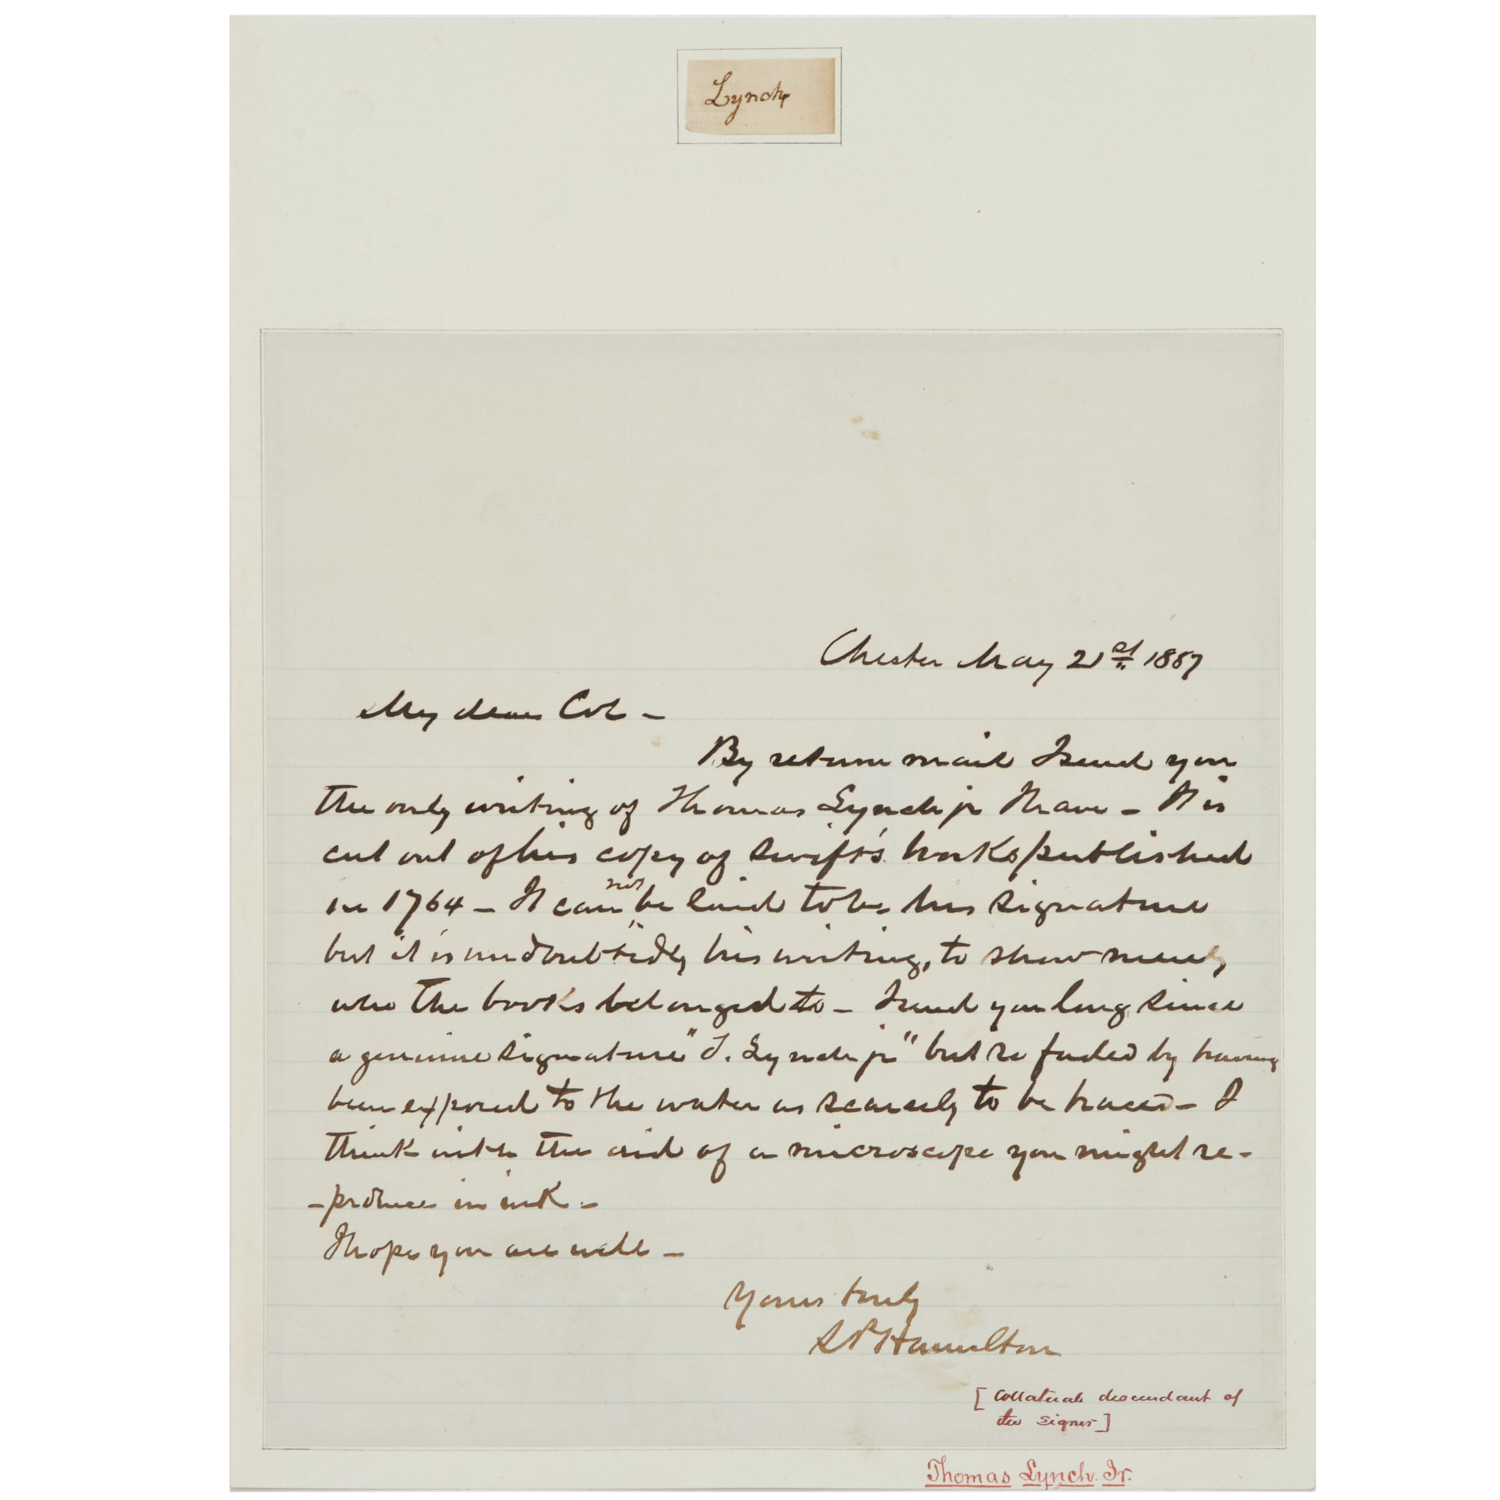 Lynch
Chester May 21st. 1887
My dear Col -
By return mail I send you
the only writing of Thomas Lynch jr I have - It is
cut out of his copy of Swift's works published
in 1764 - It can not be said to be his signature
but it is undoubtidly his writing, to show merely
who the books belonged to - I send you long since
a genuine signature "T. Lynch jr" but so faded by having
been exposed to the water as scarcely to be traced - I
think with the aid of a microscope you might re-
-produce in ink -
I hope you are well -
Yours truly
S P Hamilton
[Collateral descendant of
the Signer]
Thomas Lynch. Jr.